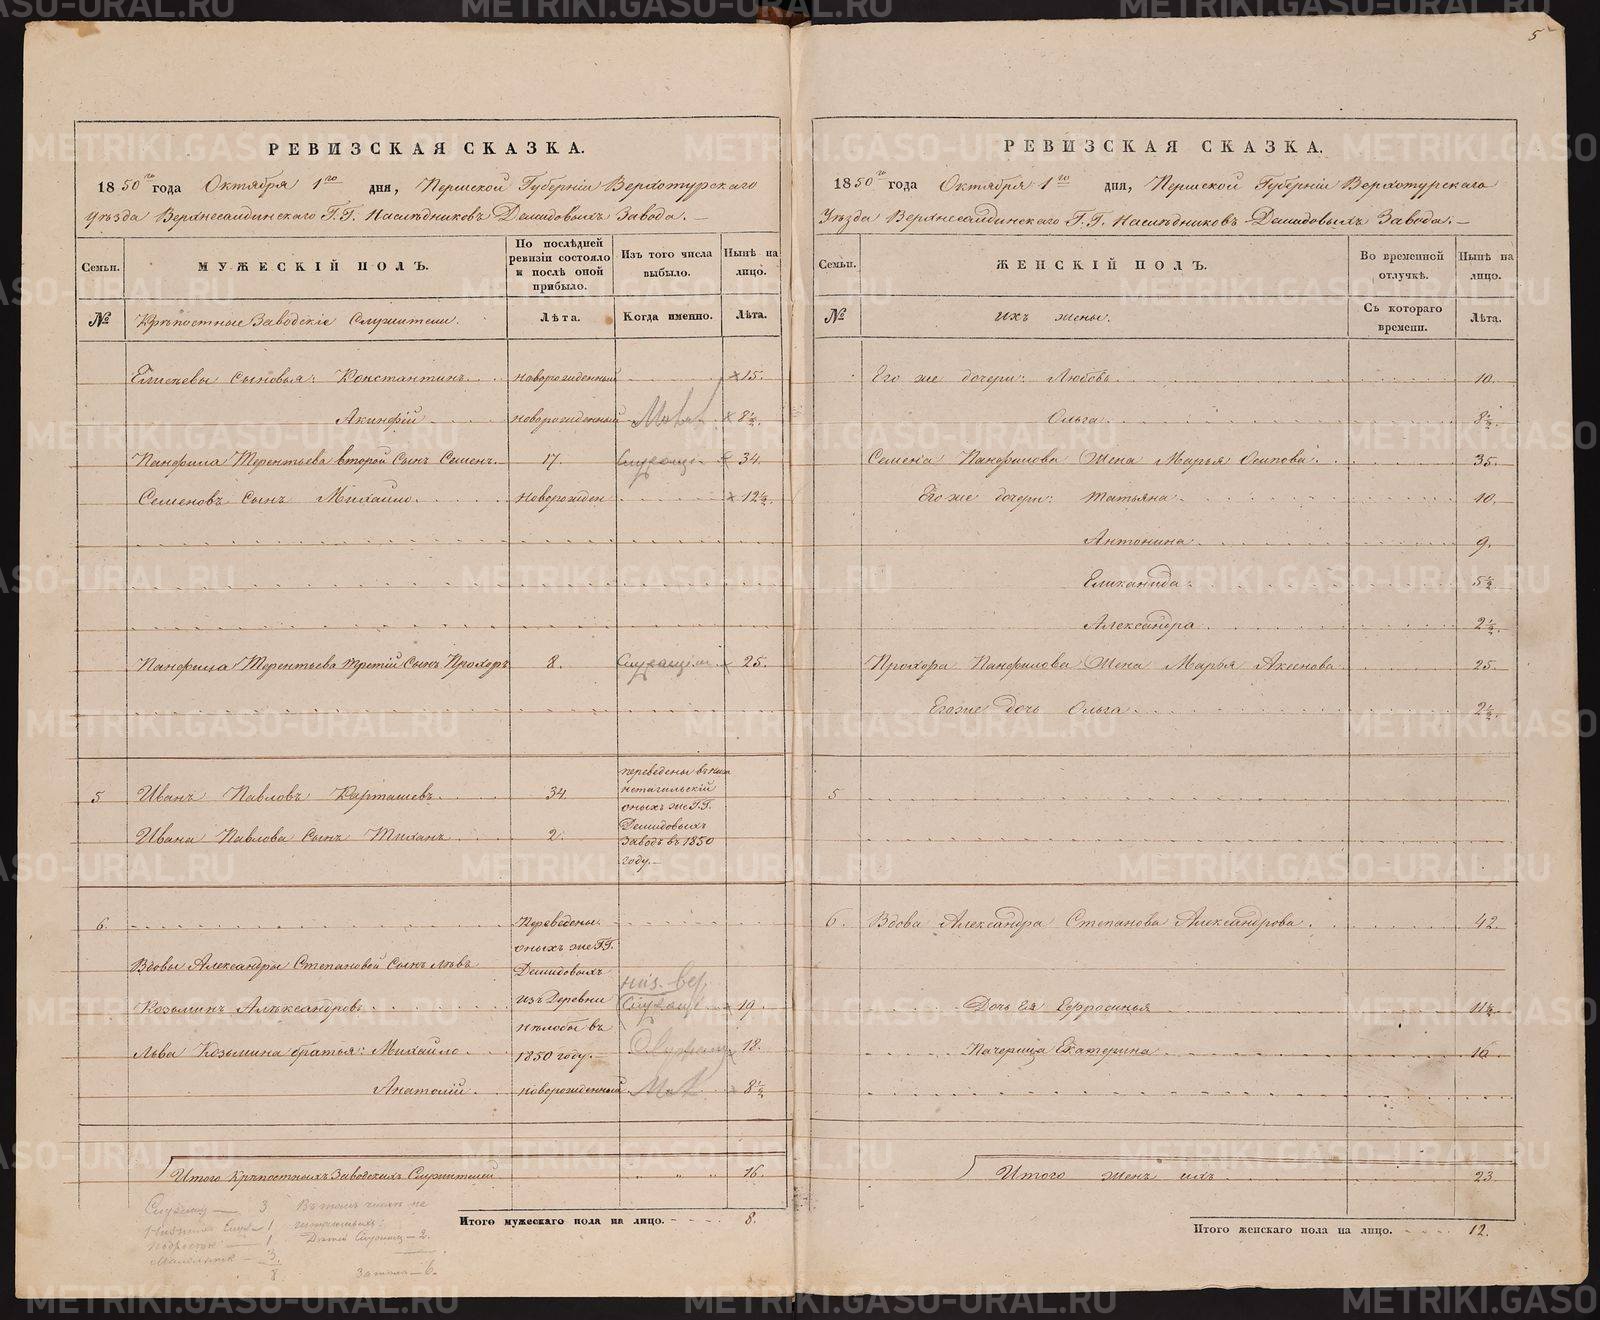 5
РЕВИЗСКАЯ СКАЗКА.
1850го года Октября 1го дня, Пермской Губерніи Верхотурскаго
уѣзда Верхнесалдинскаго Г.Г. Наслѣдниковъ Демидовыхъ Завода. —
Семьи.
МУЖЕСКІЙ ПОЛЪ.
По послѣдней ревизіи состояло и послѣ оной прибыло.
Изъ того числа выбыло.
Нынѣ на лицо.
№
Крѣпостные Заводскіе Служители.
Лѣта.
Когда именно.
Лѣта.
Константинъ новорожденный 15.
Акинфій новорожденный 8½.
Панфила Терентьева второй Сынъ Семенъ. 17. 34.
Семеновъ Сынъ Михайло. Новорожден 12½.
Панфила Терентьева третій Сынъ Прохоръ 8. 25.
5 Иванъ Павловъ Карташевъ. 34.
Ивана Павлова Сынъ Тиханъ 2.
переведены въ ниж
нетагильскій
оныхъ же Г.Г.
Демидовыхъ
Заводъ въ 1850
году. —
6.
Переведены
оныхъ же Г.Г.
Демидовыхъ
изъ Деревни
въ
1850 году. —
Вдовы Александры Степановой Сынъ Левъ
Козьминъ Александровъ 19
Льва Козьмина братья: Михайло 18.
Анатолій новорожденный 8½
Итого Крѣпостныхъ Заводскихъ Служителей „ „ 16.
Итого мужескаго пола на лицо. 8.
3
1
1
3.
8
2.
6.
РЕВИЗСКАЯ СКАЗКА.
1850го года Октября 1го дня, Пермской Губерніи Верхотурскаго
Уѣзда Верхнесалдинскаго Г.Г. Наслѣдниковъ Демидовыхъ Завода. —
Семьи.
ЖЕНСКІЙ ПОЛЪ.
Во временной отлучкѣ.
Нынѣ на лицо.
№
Ихъ жены.
Съ котораго времени.
Лѣта.
Его же дочери: Любовь 10.
Ольга 8½.
Семена Панфилова Жена Марья Осипова 35.
Его же дочери: Татьяна 10.
Антонина 9.
5½
Александра 2½.
Прохора Панфилова Жена Марья Аксенова 25.
Его же дочь Ольга 2½.
5
6. Вдова Александра Степанова Александрова. 42.
Дочь Ея Ефросинья 11½
Пачерица Екатерина 16
Итого женъ ихъ 23.
Итого женскаго пола на лицо. 12.
METRIKI.GASO-URAL.RU